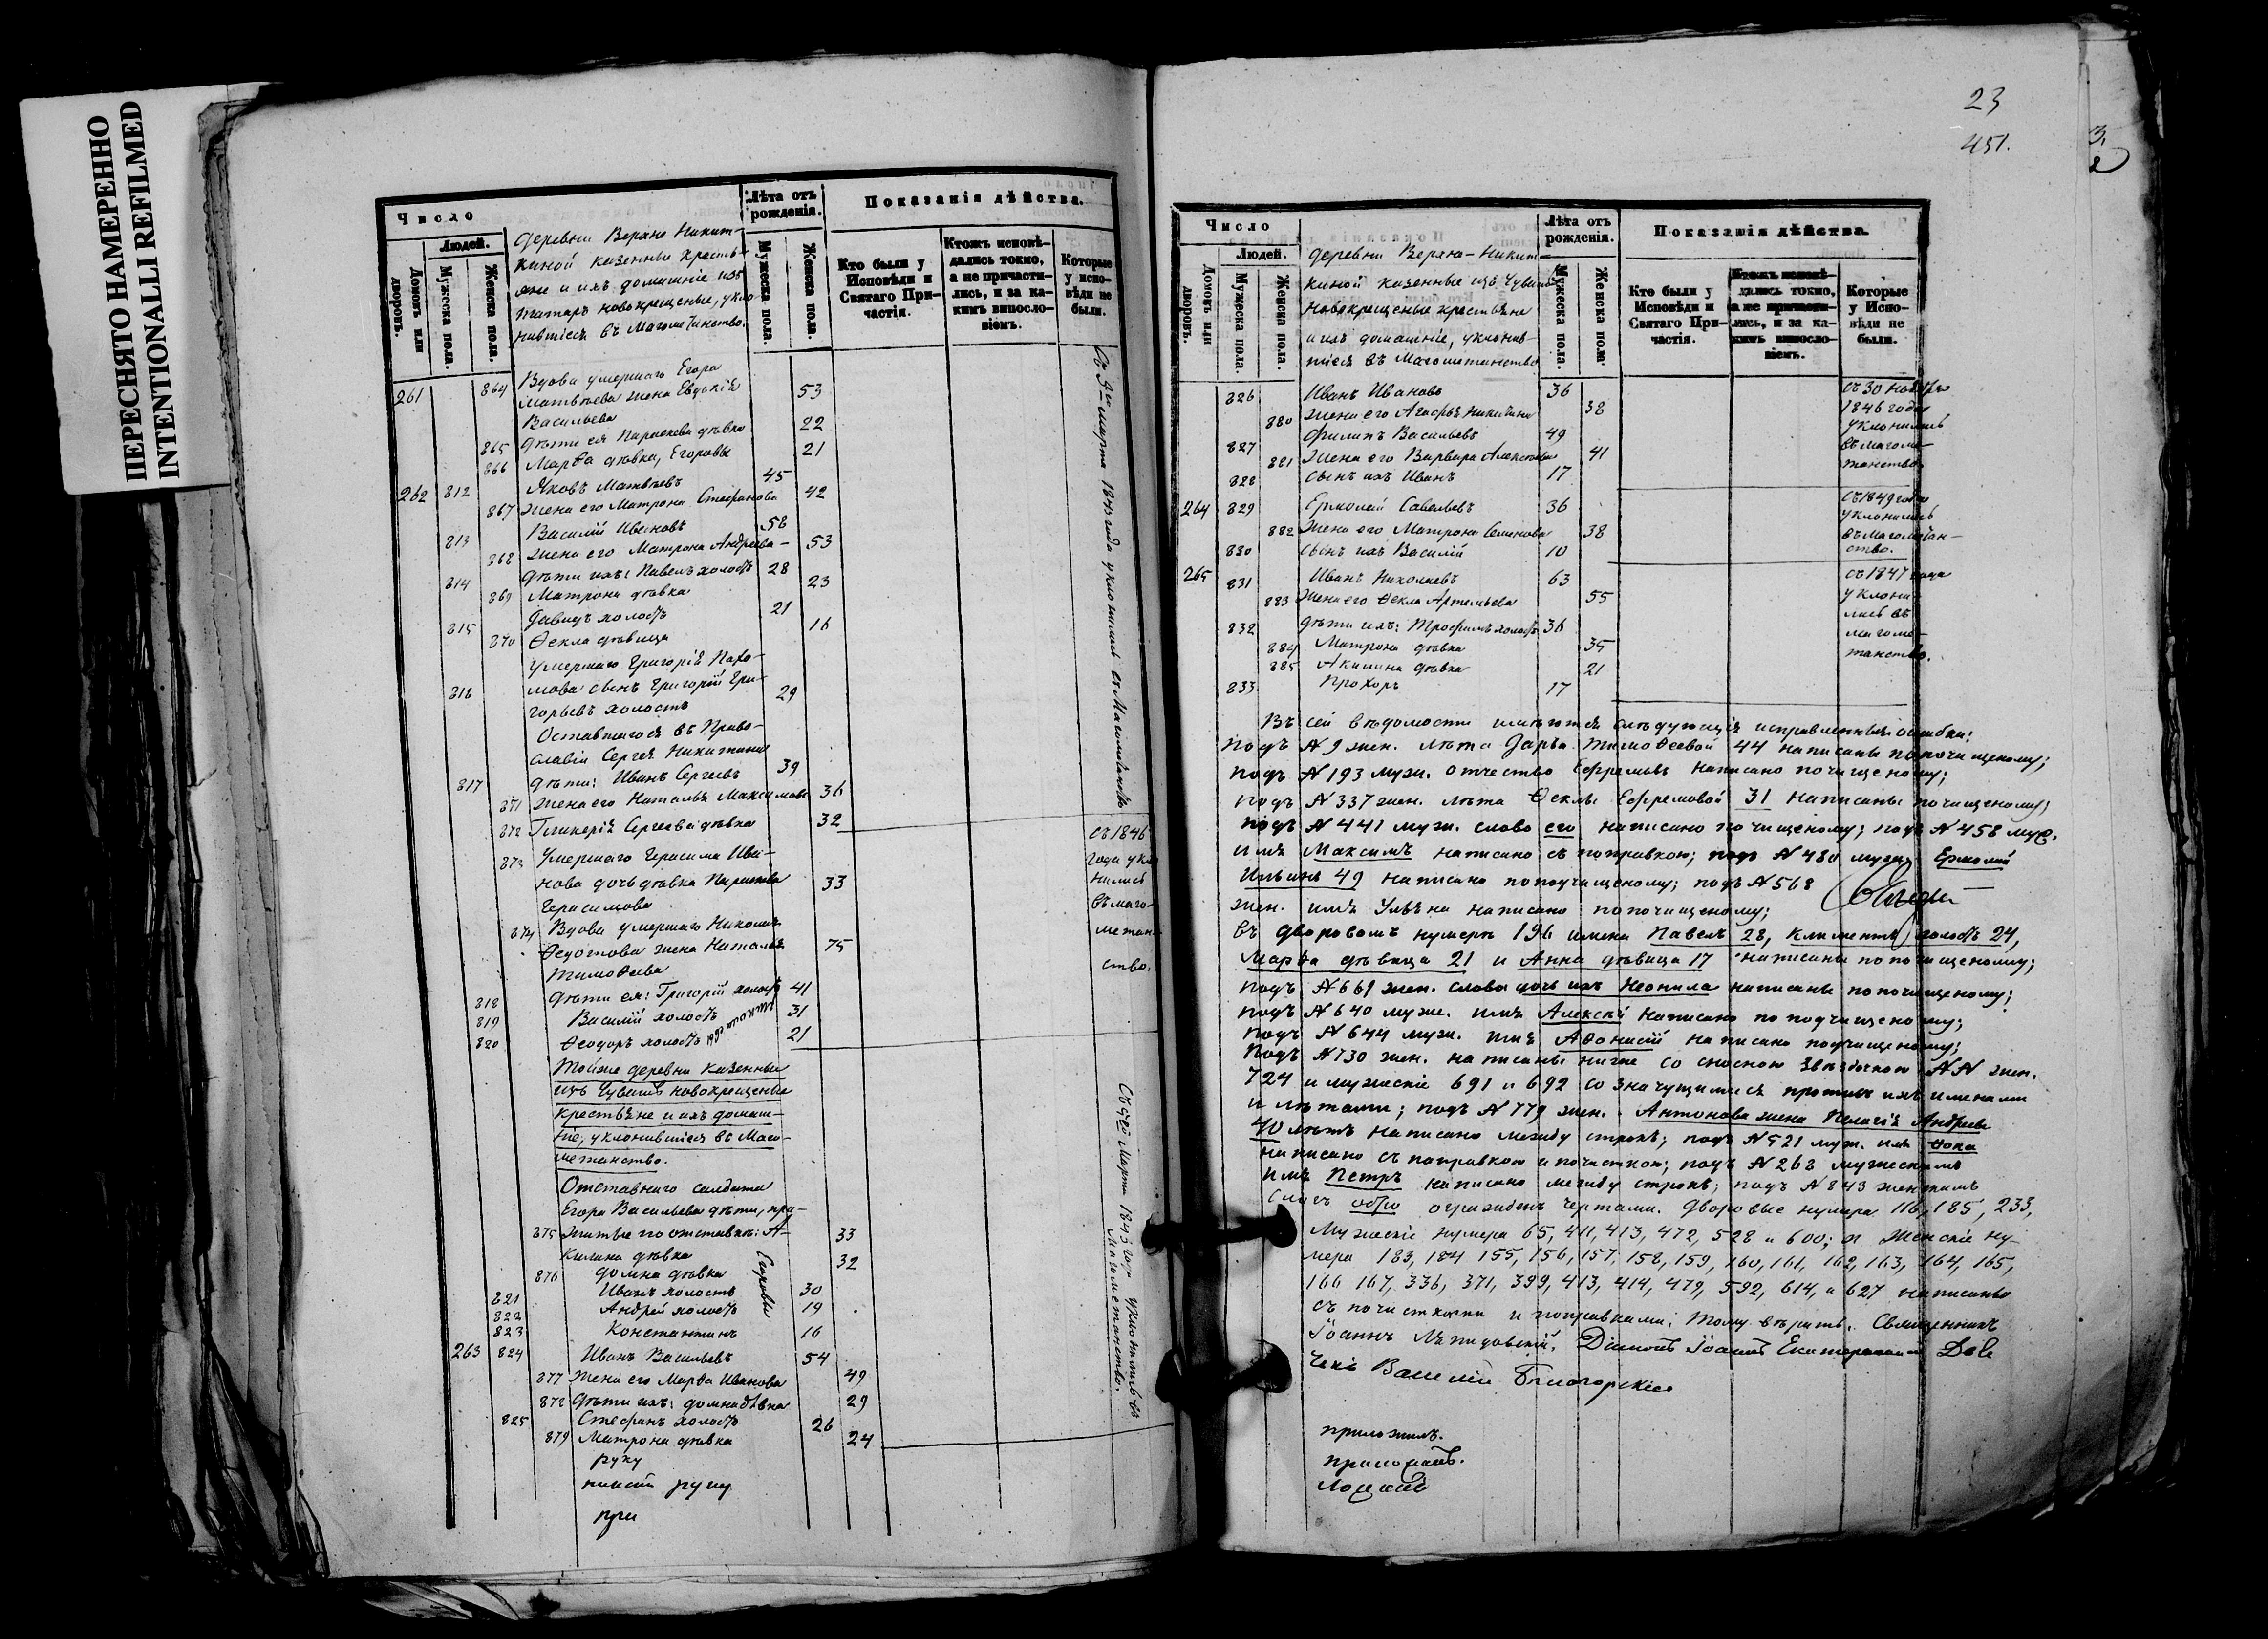 ПЕРЕСНЯТО НАМЕРЕННО
INTENTIONALLI REFILMED
Число
Людей.
Домовъ или дворовъ.
Мужеска пола.
Женска пола.
деревни Верхне Никит-
киной казенные кресть-
яне и ихъ домашніе изъ
татаръ новокрещеные, укло-
нившіеся въ Магометанство.
Лѣта отъ рожденія.
Мужеска пола.
Женска пола.
Показанія дѣйства.
Кто были у Исповѣди и Святаго Причастія.
Ктожъ исповѣ-
дались токмо,
а не причасти-
лись, и за ка-
кимъ виносло-
віемъ.
Которые
у испо-
вѣди не
были.
261 864 Вдова умершаго Егора
Матвѣева жена Евдокія 53
Васильева
865 дѣти ея Параскева дѣвка 22
866 Марѳа дѣвка, Егоровы 21
262 812 Яковъ Матвѣевъ 45
867 жена его Матрона Стефанова 42
813 Василій Ивановъ 58
868 жена его Матрона Андреева 53
814 дѣти ихъ: Павелъ холостъ 28
869 Матрона дѣвка 23
815 Давидъ холостъ 21
870 Ѳекла дѣвица 16
Умершаго Григорія Пахо-
816 мова сынъ Григорій Гри- 29
горьевъ холостъ
Оставшагося въ Право-
славіи Сергея Никитина
817 дѣти: Иванъ Сергеевъ 39
871 жена его Наталья Максимова 36
872 Гликерія Сергеева дѣвка 32
873 Умершаго Герасима Ива-
нова дочь дѣвка Параскева 33
Герасимова
874 Вдова умершаго Николая
Ѳедотова жена Наталья 75
Тимоѳеева
818 дѣти ея: Григорій холостъ 41
819 Василій холостъ 31
820 Ѳеодоръ холостъ 21
Съ 9го марта 1843 года уклонились въ Магометанство
съ 1846
года укло
нились
въ маго-
метан-
ство.
Тойже деревни казенные
изъ Чувашъ новокрещеные
крестьяне и ихъ домаш-
ніе, уклонившіеся въ Маго-
метанство.
Отставнаго солдата
Егора Васильева дѣти, при-
875 житые по отставкѣ: А- 33
килина дѣвка
876 Домна дѣвка 32
821 Иванъ холостъ 30
822 Андрей холостъ 19
823 Константинъ 16
Егоровы
263 824 Иванъ Васильевъ 54
877 жена его Марѳа Иванова 49
878 дѣти ихъ: Домна дѣвка 29
825 Стефанъ холостъ 26
879 Матрона дѣвка 24
Съ 9го Марта 1843 года уклонились въ Магометанство.
руку
руку
при
23
451.
Число
Людей.
Домовъ или дворовъ.
Мужеска пола.
Женска пола.
деревни Верхне-Никит-
киной казенные изъ Чувашъ
новокрещеные крестьяне
и ихъ домашніе, уклонив-
шіеся въ Магометанство
Лѣта отъ рожденія.
Мужеска пола.
Женска пола.
Показанія дѣйства.
Кто были у Исповѣди и Святаго Причастія.
Ктожъ исповѣ-
дались токмо,
а не причасти-
лись, и за ка-
кимъ виносло-
віемъ.
Которые
у Испо-
вѣди не
были.
826 Иванъ Ивановъ 36
880 жена его Агафья Никитина 38
827 Филипъ Васильевъ 49
881 жена его Варвара Алексѣева 41
828 сынъ ихъ Иванъ 17
съ 30 ноября
1846 года
уклонились
въ магоме-
танство
264 829 Ермолай Савельевъ 36
882 жена его Матрона Семенова 38
830 сынъ ихъ Василій 10
съ 1849 года
уклонились
въ Магометан-
ство.
265 831 Иванъ Николаевъ 63
883 жена его Ѳекла Артемьева 55
832 дѣти ихъ: Трофимъ холостъ 36
884 Матрона дѣвка 35
885 Акилина дѣвка 21
833 Прохоръ 17
съ 1847 года
уклони-
лись въ
магоме-
танство.
Въ сей вѣдомости имѣются слѣдующія исправленныя ошибки:
подъ № 9 жен. лѣта Дарьи Тимоѳеевой 44 написаны по почищеному;
подъ № 193 муж. отчество Ефремовъ написано почищеному;
подъ № 337 жен. лѣта Ѳеклы Ефремовой 31 написаны почищеному;
подъ № 441 муж. слово его написано по чищеному; подъ № 458 муж.
имя Максимъ написано съ поправкою; подъ № 480 муж. Ермолай
Ильинъ 49 написано по подчищеному; подъ № 568
жен. имя Ульяна написано по почищеному;
въ дворовомъ нумерѣ 196 имена Павелъ 28, Климентъ холостъ 24,
Марѳа дѣвица 21 и Анна дѣвица 17 написаны по почищеному;
подъ № 661 жен. слова дочь ихъ Неонила написаны по почищеному;
подъ № 640 муж. имя Алексѣй написано по подчищеному;
подъ № 644 муж. имя Аѳонасій написано подчищеному;
Подъ № 730 жен. написаны ниже со сноскою звѣздочкою №№ жен.
724 и мужескіе 691 и 692 со значущимися противъ ихъ именами
и лѣтами; подъ № 779 жен. Антонова жена Пелагія Андреева
40 лѣтъ написано между строкъ; подъ № 521 муж. имя Ѳока
написано съ поправкою и почисткою; подъ № 262 мужескимъ
имя Петръ написано между строкъ; подъ № 843 женскимъ
слогъ обро огражденъ чертами. Дворовые нумера 116, 185, 233,
Мужескіе нумера 65, 411, 413, 472, 528 и 600; и Женскіе ну-
мера 183, 184 155, 156, 157, 158, 159, 160, 161, 162, 163, 164, 165,
166 167, 336, 371, 399, 413, 414, 479, 592, 614, и 627 написаны
съ почистками и поправками; тому вѣрить. Священникъ
Іоаннъ Лепидовскій. Діаконъ Іоаннъ
Василій
приложилъ.